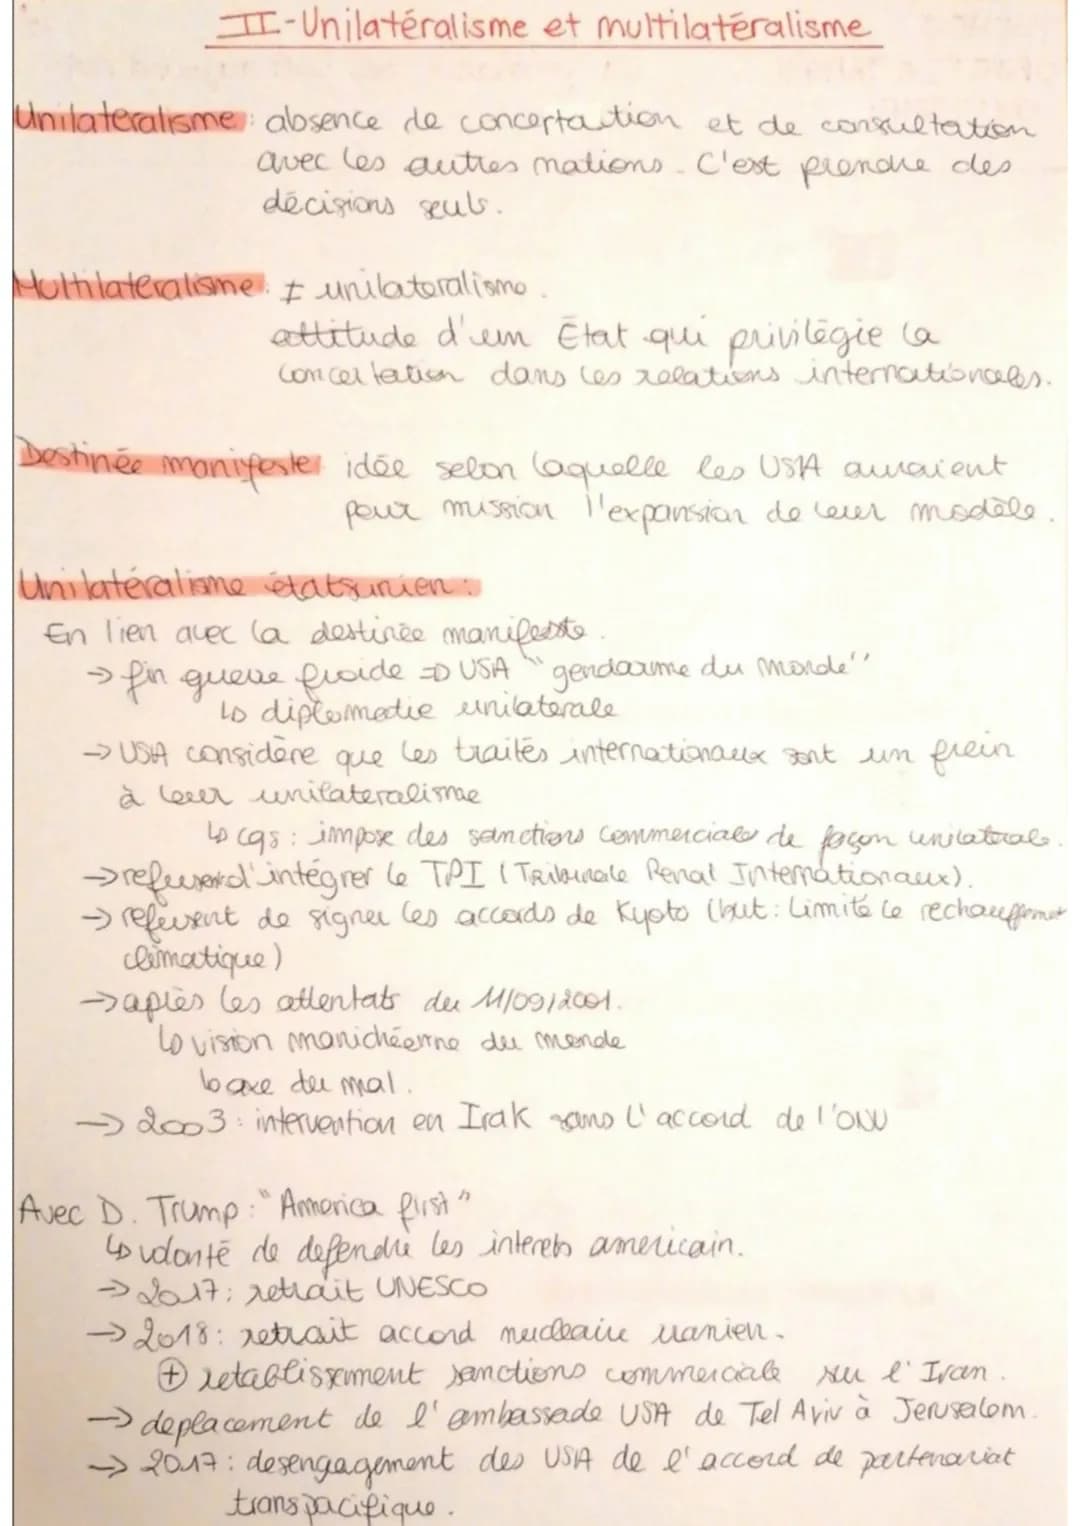 II - Unilatéralisme et multilatéralisme
Unilateralisme : absence de concertaction et de consultation
avec les autres nations. C'est prendre des
décisions seuls.
Multilateralisme : ≠ unilateralisme.
attitude d'un État qui privilégie la
concertation dans les relations internationales.
Destinée manifeste idée selon laquelle les USA auraient
pour mission l'expansion de leur modèle.
Unilatéralisme étatsunien :
En lien avec la destinée manifeste.
→ fin guerre froide => USA "gendarme du monde"
↳ diplomatie unilaterale
→ USA considère que les traités internationaux sont un frein
à leur unilateralisme
↳ cqs : impose des sanctions commerciales de façon unilaterale.
→ refusend d'intégrer le TPI (Tribunale Penal Internationaux).
→ refusent de signer les accords de Kyoto (but : limité le rechauffement
climatique)
→ après les attentats du 11/09/2001.
↳ vision manichéenne du monde
↳ axe du mal.
→ 2003 : intervention en Irak sans l'accord de l'ONU
Avec D. Trump : "America first"
↳ volonté de defendre les interets americain.
→ 2017 : retrait UNESCO
→ 2018 : retrait accord nucleaire iranien.
⊕ retablissement sanctions commerciale sur l'Iran.
→ deplacement de l'ambassade USA de Tel Aviv à Jerusalem.
→ 2017 : desengagement des USA de l'accord de partenariat
transpacifique.